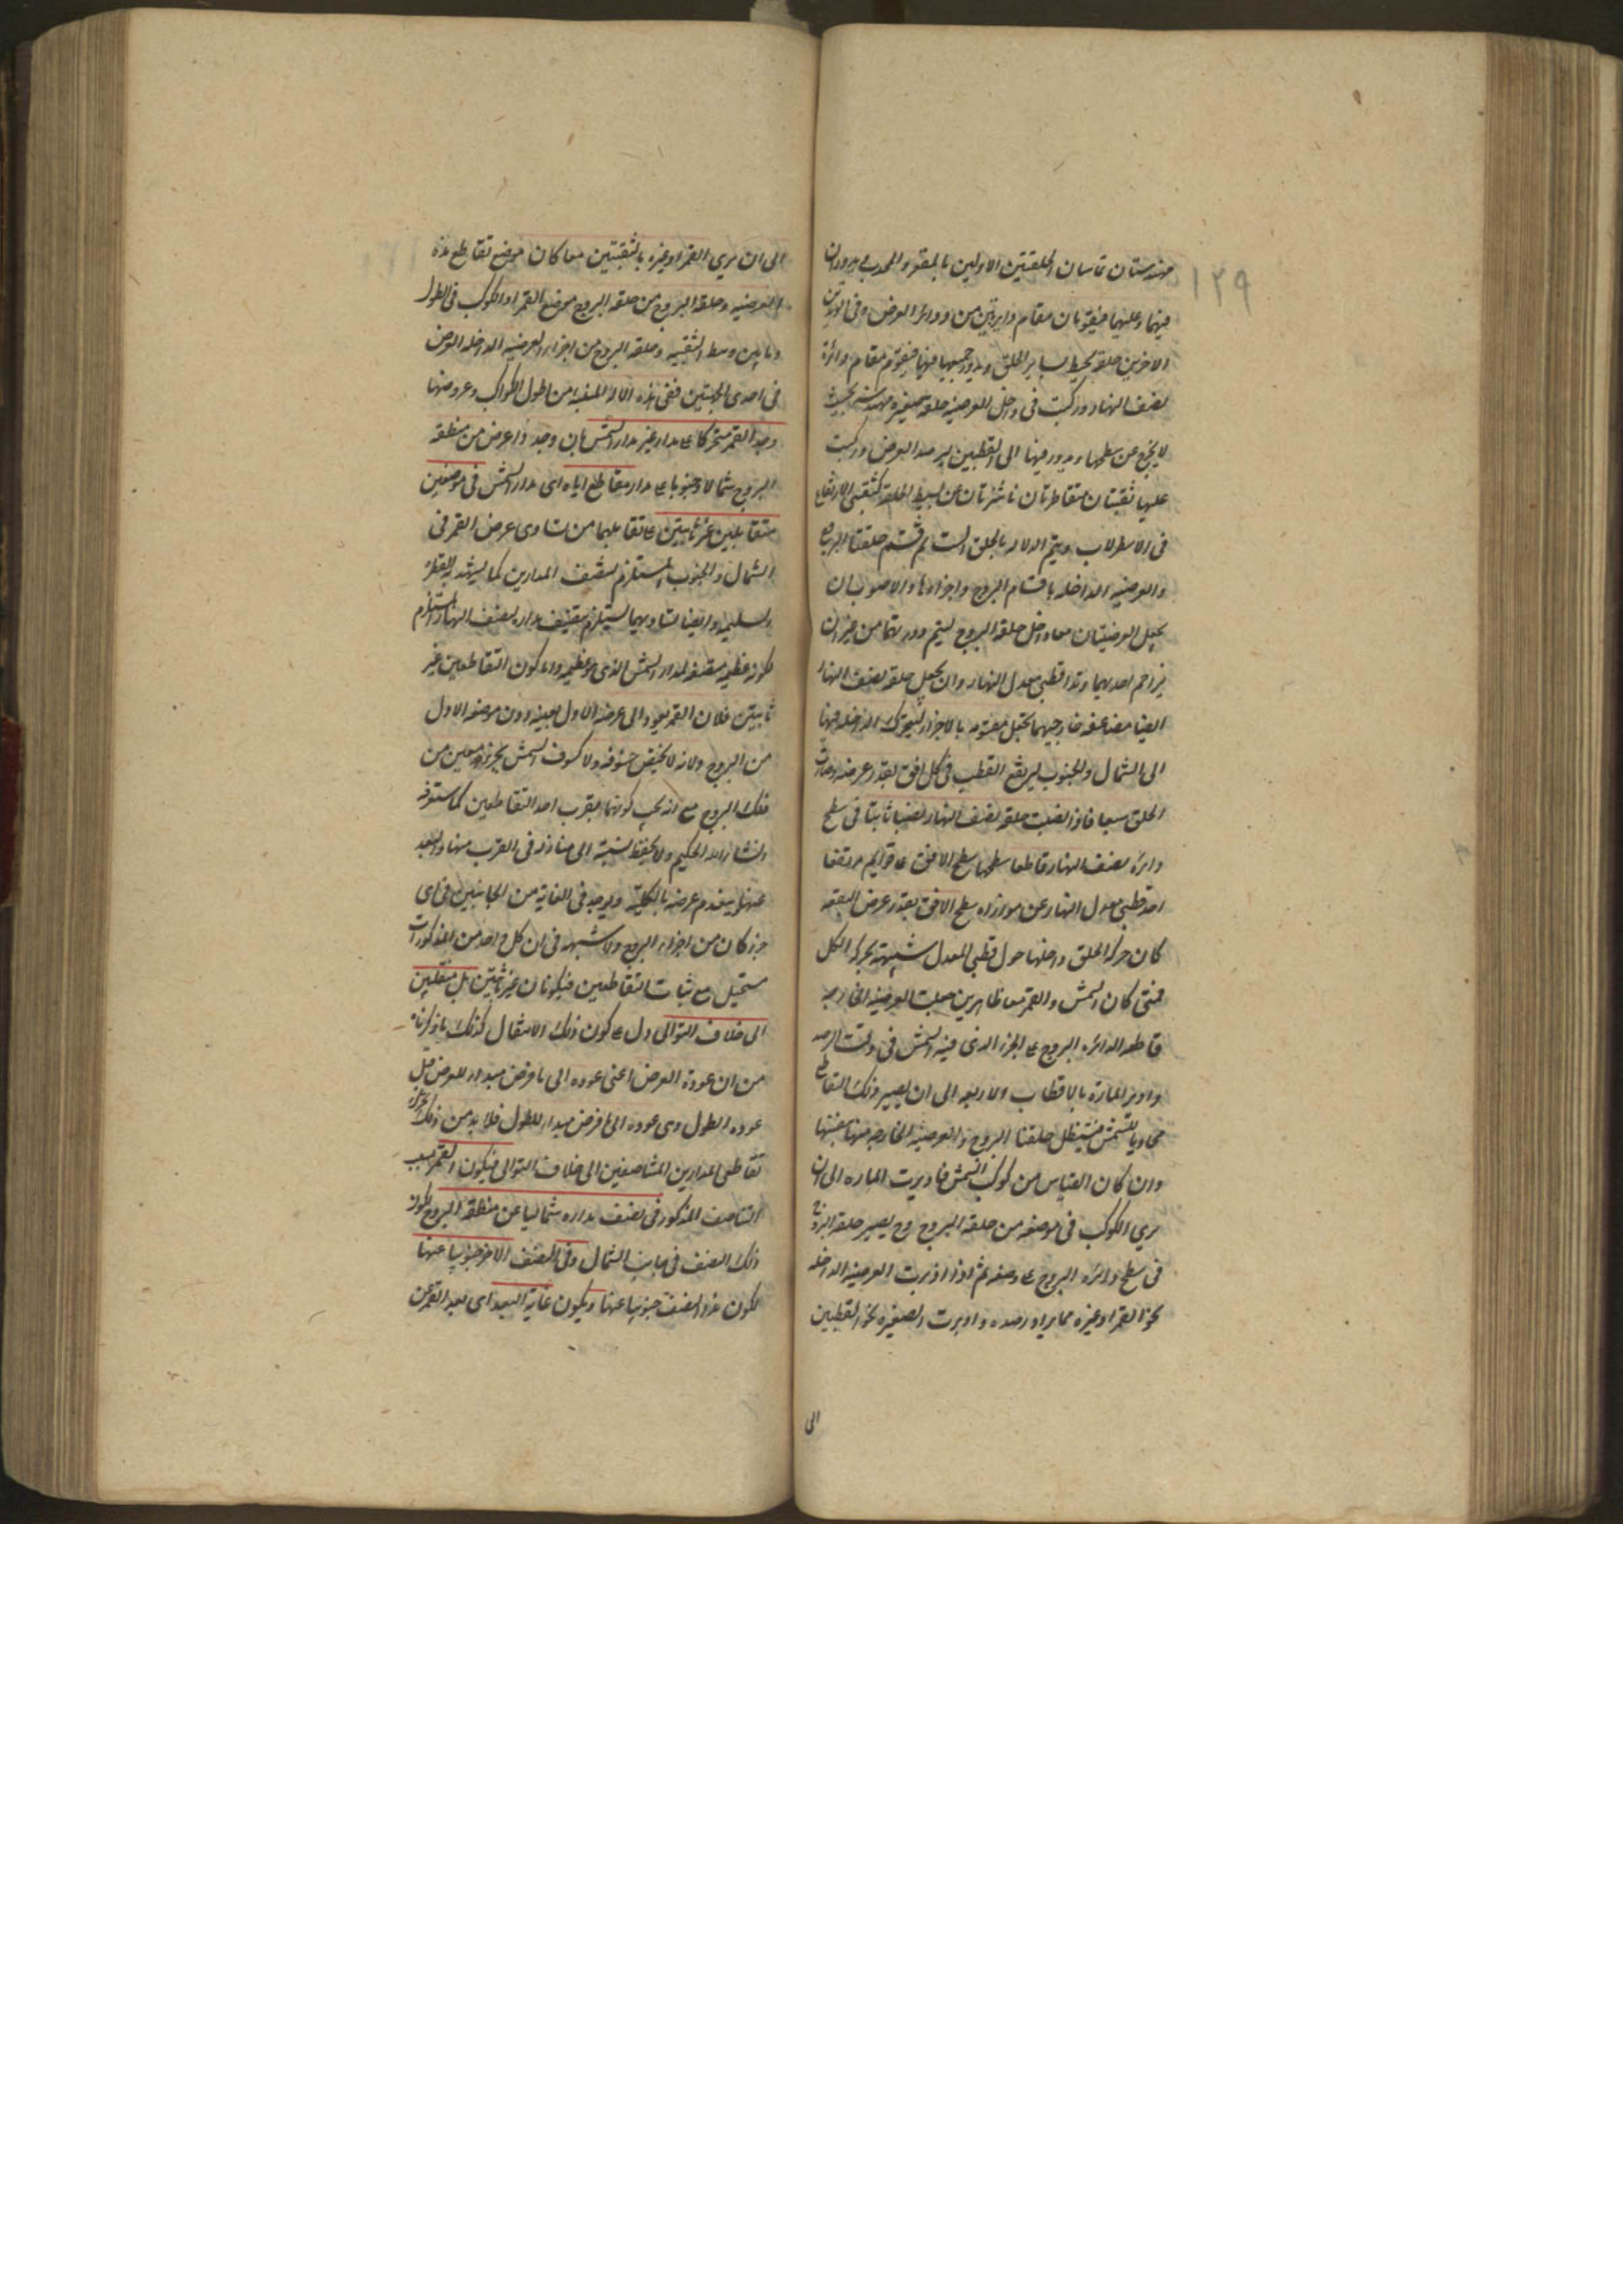 ١٢٩
مهندستان تماسان الحلقتين الاوليين بالمقعر والمحدب يدوران
فيهما وعليهما فيقومان مقام دايرتين من دوائر العرض وفى
الاخرين حلقة يحيط بساير الحلق ويدور جميعها فيها فيقوم مقام دائرة
نصف النهار وركبت فى داخل العرضية حلقة صغيرة مهندسة بحيث
لا يخرج عن سطحها ويدور فيها الى القطبين لرصد العرض وركبت
عليها ثقبتان متقاطرتان ناشزتان عن بسيط الحلقة كثقبتى الارتفاع
فى الاسطرلاب ويتم الالة بالحلق الست ثم قسم حلقتا البروج
والعرضية الداخلة باقسام البروج واجزاءها والاصوب ان
يجعل العرضيتان معا داخل حلقة البروج ليتم دورتهما من غير ان
يزاحم احديهما وتدا قطبى معدل النهار وان يجعل حلقة نصف النهار
ايضا مضاعفة خارجيهما مقسومة بالاجزاء ليتحرك الداخلة فيها
الى الشمال والجنوب ليرتفع القطب فى كل افق بقدر عرضه وصارت
الحلق سبعا فاذا نصبت حلقة نصف النهار نصبا ثابتا فى سطح
دائرة نصف النهار قاطعا سطحها سطح الافق على قوايم مرتفعا
احد قطبى معدل النهار عن موازاه سطح الافق بقدر عرض البقعة
كان حركة الحلق داخلها حول قطبى المعدل شبيهة بحركة الكل
فمتى كان الشمس والقمر معا ظاهرين جعلت العرضية الخارجة
قاطعة الدائرة البروج على الجزء الذى فيه الشمس فى وقت الرصد
وادير المارة بالاقطاب الاربعة الى ان يصير ذلك التقاطع
محاذيا للشمس فيستظل حلقتا البروج والعرضية الخارجة منها بنفسها
وان كان القياس من كوكب الشمس فاديرت المارة الى ان
يرى الكوكب فى موضعه من حلقة البروج وح يصير حلقة البروج
فى سطح دائرة البروج على وضعه ثم اذا اديرت العرضية الداخلة
نحو القمر او غيره مما يراد رصده واديرت الصغيرة نحو القطبين
الى
الى ان يرى القمر او غيره بالثقبتين معا كان موضع تقاطع هذه
العرضية وحلقة البروج من حلقة البروج موضع القمر او الكوكب فى الطول
وما بين وسط الثقبة وحلقة البروج من اجزاء العرضية الداخلة العرض
فى احدى الجهتين ففى هذه الالة من اطول الكواكب وعروضها
وجد القمر متحركا على مدار غير مدار الشمس بان وجد ذا عرض من منطقة
البروج شمالا وجنوبا على مدار مقاطع اياه اى مدار الشمس فى موضعين
متقابلين غير ثابتين على تقابلهما من تساوى عرض القمر فى
الشمال والجنوب المستلزم لتنصف المدارين كما يشهد به الفطرة
السليمة وايضا تساويهما يستلزم تنصيف مداره بنصف النهار المستلزم
لكونه عظيمة منصفة لمدار الشمس الذى هو عظيمة واما كون التقاطعين غير
ثابتين فلان القمر يعود الى عرضه الاول بعينه دون موضعه الاول
من البروج ولانه لا يختص خسوفه ولا كسوف الشمس بجزء معين من
فلك البروج مع انه يجب كونهما بقرب احد التقاطعين كما ستعرفه
انشاء الله الحكيم ولا يحفظ نسبته الى منازله فى القرب منها والبعد
عنها وينعدم عرضه بالكلية ويوجد فى الغاية من الجانبين فى اى
جزء كان من اجزاء البروج ولا شبهة فى ان كل واحد من المذكورات
مستحيل مع ثبات التقاطعين فيكونان غير ثابتين بل منتقلين
الى خلاف التوالى دل على كون ذلك الانتقال كذلك ما ذكرناه
من ان عودة العرض اعنى عوده الى ما فرض مبداء للعرض قبل
عودة الطول وهى عوده الى ما فرض مبداء للطول فلا بد من ذلك تحرك
تقاطعى المدارين المتناصفين الى خلاف التوالى فيكون القمر بسبب
التناصف المذكور فى نصف مداره شماليا عن منطقة البروج لكون
ذلك النصف فى جانب الشمال وفى النصف الاخر جنوبيا عنها
لكون هذا النصف جنوبيا عنها ويكون غاية البعد اى بعد القمر عن